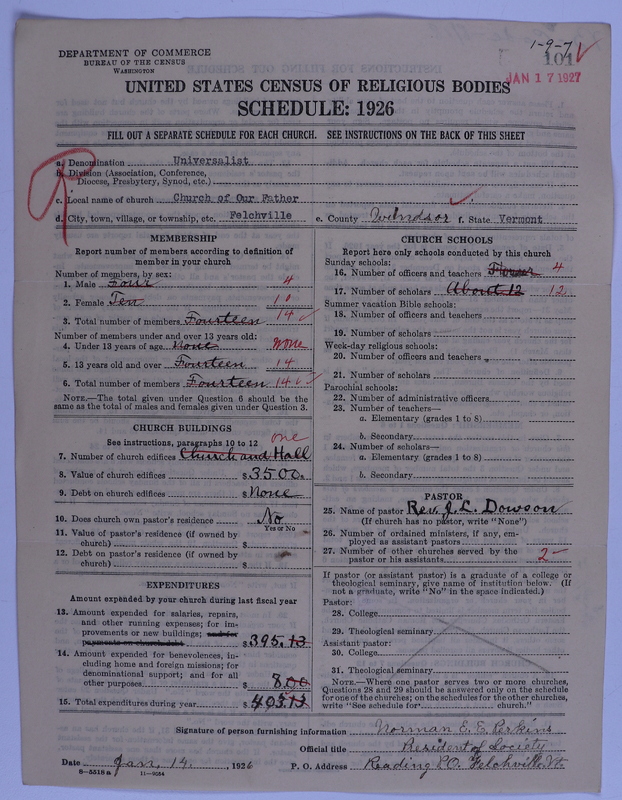 DEPARTMENT OF COMMERCE
BUREAU OF THE CENSUS
WASHINGTON
1-9-7
101
JAN 17 1927
UNITED STATES CENSUS OF RELIGIOUS BODIES
SCHEDULE: 1926
FILL OUT A SEPARATE SCHEDULE FOR EACH CHURCH. SEE INSTRUCTIONS ON THE BACK OF THIS SHEET
R
a. Denomination Universalist
b. Division (Association, Conference,
Diocese, Presbytery, Synod, etc.)
c. Local name of church Church of Our Father
d. City, town, village, or township, etc. Felchville e. County Windsor f. State Vermont
MEMBERSHIP
Report number of members according to definition of
member in your church
Number of members, by sex:
1. Male Four 4
2. Female Ten 10
3. Total number of members Fourteen 14
Number of members under and over 13 years old:
4. Under 13 years of age None none
5. 13 years old and over Fourteen 14
6. Total number of members Fourteen 14
NOTE.—The total given under Question 6 should be the
same as the total of males and females given under Question 3.
CHURCH BUILDINGS
See instructions, paragraphs 10 to 12
one
7. Number of church edifices Church and Hall
8. Value of church edifices $3500.
9. Debt on church edifices $None
10. Does church own pastor's residence No
Yes or No
11. Value of pastor's residence (if owned by
church) $
12. Debt on pastor's residence (if owned by
church) $
EXPENDITURES
Amount expended by your church during last fiscal year
13. Amount expended for salaries, repairs,
and other running expenses; for im-
provements or new buildings; and for
payments on church debt $395.13
14. Amount expended for benevolences, in-
cluding home and foreign missions; for
denominational support; and for all
other purposes $8.00
15. Total expenditures during year $403.13
CHURCH SCHOOLS
Report here only schools conducted by this church
Sunday schools:
16. Number of officers and teachers 4
17. Number of scholars About 12 12
Summer vacation Bible schools:
18. Number of officers and teachers
19. Number of scholars
Week-day religious schools:
20. Number of officers and teachers
21. Number of scholars
Parochial schools:
22. Number of administrative officers
23. Number of teachers—
a. Elementary (grades 1 to 8)
b. Secondary
24. Number of scholars—
a. Elementary (grades 1 to 8)
b. Secondary
PASTOR
25. Name of pastor Rev. J. L. Dowson
(If church has no pastor, write "None")
26. Number of ordained ministers, if any, em-
ployed as assistant pastors
27. Number of other churches served by the
pastor or his assistants 2
If pastor (or assistant pastor) is a graduate of a college or
theological seminary, give name of institution below. (If
not a graduate, write "No" in the space indicated.)
Pastor:
28. College
29. Theological seminary
Assistant pastor:
30. College
31. Theological seminary
NOTE.—Where one pastor serves two or more churches,
Questions 28 and 29 should be answered only on the schedule
for one of the churches; on the schedules for the other churches,
write "See schedule for church."
Signature of person furnishing information Norman E. E. Perkins
Official title President of Society
Date Jan. 14, 1926 P. O. Address Reading P.O. Felchville Vt.
8-5518 a 11-9054